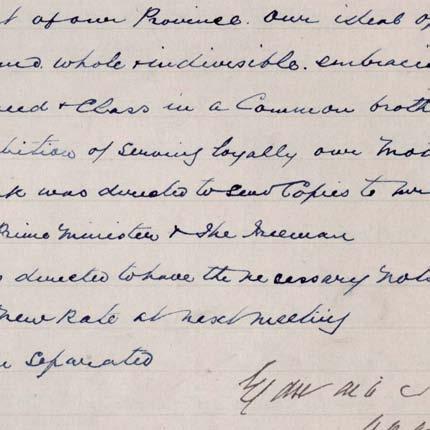 t of our Province. Our ideal of
whole & indivisible. embraci
eed & Class in a Common broth
bition of serving loyally our Mo
k was directed to send Copies to Mr
Prime Minister & The Freeman
s directed to have the necessary Not
new Rate at next meeting
n separated